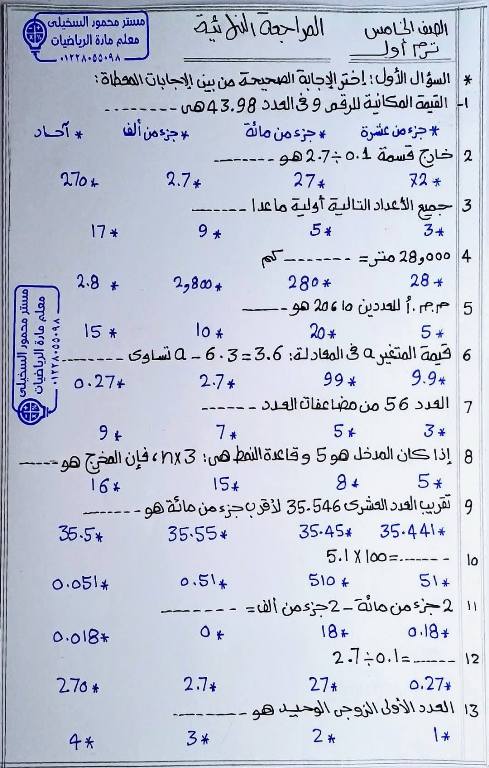 الصف الخامس
ترم أول
المراجعة النهائية
مستر محمود السخيلى
معلم مادة الرياضيات
٠١٢٢٨٠٥٥٠٩٨
* السؤال الأول: إختر الإجابة الصحيحة من بين الإجابات المعطاة:
1- القيمة المكانية للرقم 9 فى العدد 43.98 هى --------
* جزء من عشرة * جزء من مائة * جزء من ألف * آحاد
2 خارج قسمة 0.1 ÷ 2.7 هو -------
* 72 * 27 * 2.7 * 270
3 جميع الأعداد التالية أولية ماعدا ------
* 3 * 5 * 9 * 17
4 28,000 متر = -------- كم
* 28 * 280 * 2,800 * 2.8
5 م.م.أ للعددين 10 ، 20 هو -----
* 5 * 20 * 10 * 15
6 قيمة المتغير a فى المعادلة: a - 6.3 = 3.6 تساوى --------
* 9.9 * 99 * 2.7 * 0.27
7 العدد 56 من مضاعفات العدد ------
* 3 * 5 * 7 * 9
8 إذا كان المدخل هو 5 و قاعدة النمط هى: n x 3 ، فإن المخرج هو -----
* 5 * 8 * 15 * 16
9 تقريب العدد العشرى 35.546 لأقرب جزء من مائة هو ------
* 35.441 * 35.45 * 35.55 * 35.5
10 5.1 x 100 = -------
* 51 * 510 * 0.51 * 0.051
11 2 جزء من مائة - 2 جزء من ألف = --------
* 0.18 * 18 * 0 * 0.018
12 2.7 ÷ 0.1 = ------
* 0.27 * 27 * 2.7 * 270
13 العدد الأولى الزوجى الوحيد هو --------
* 1 * 2 * 3 * 4
مستر محمود السخيلى
معلم مادة الرياضيات
٠١٢٢٨٠٥٥٠٩٨